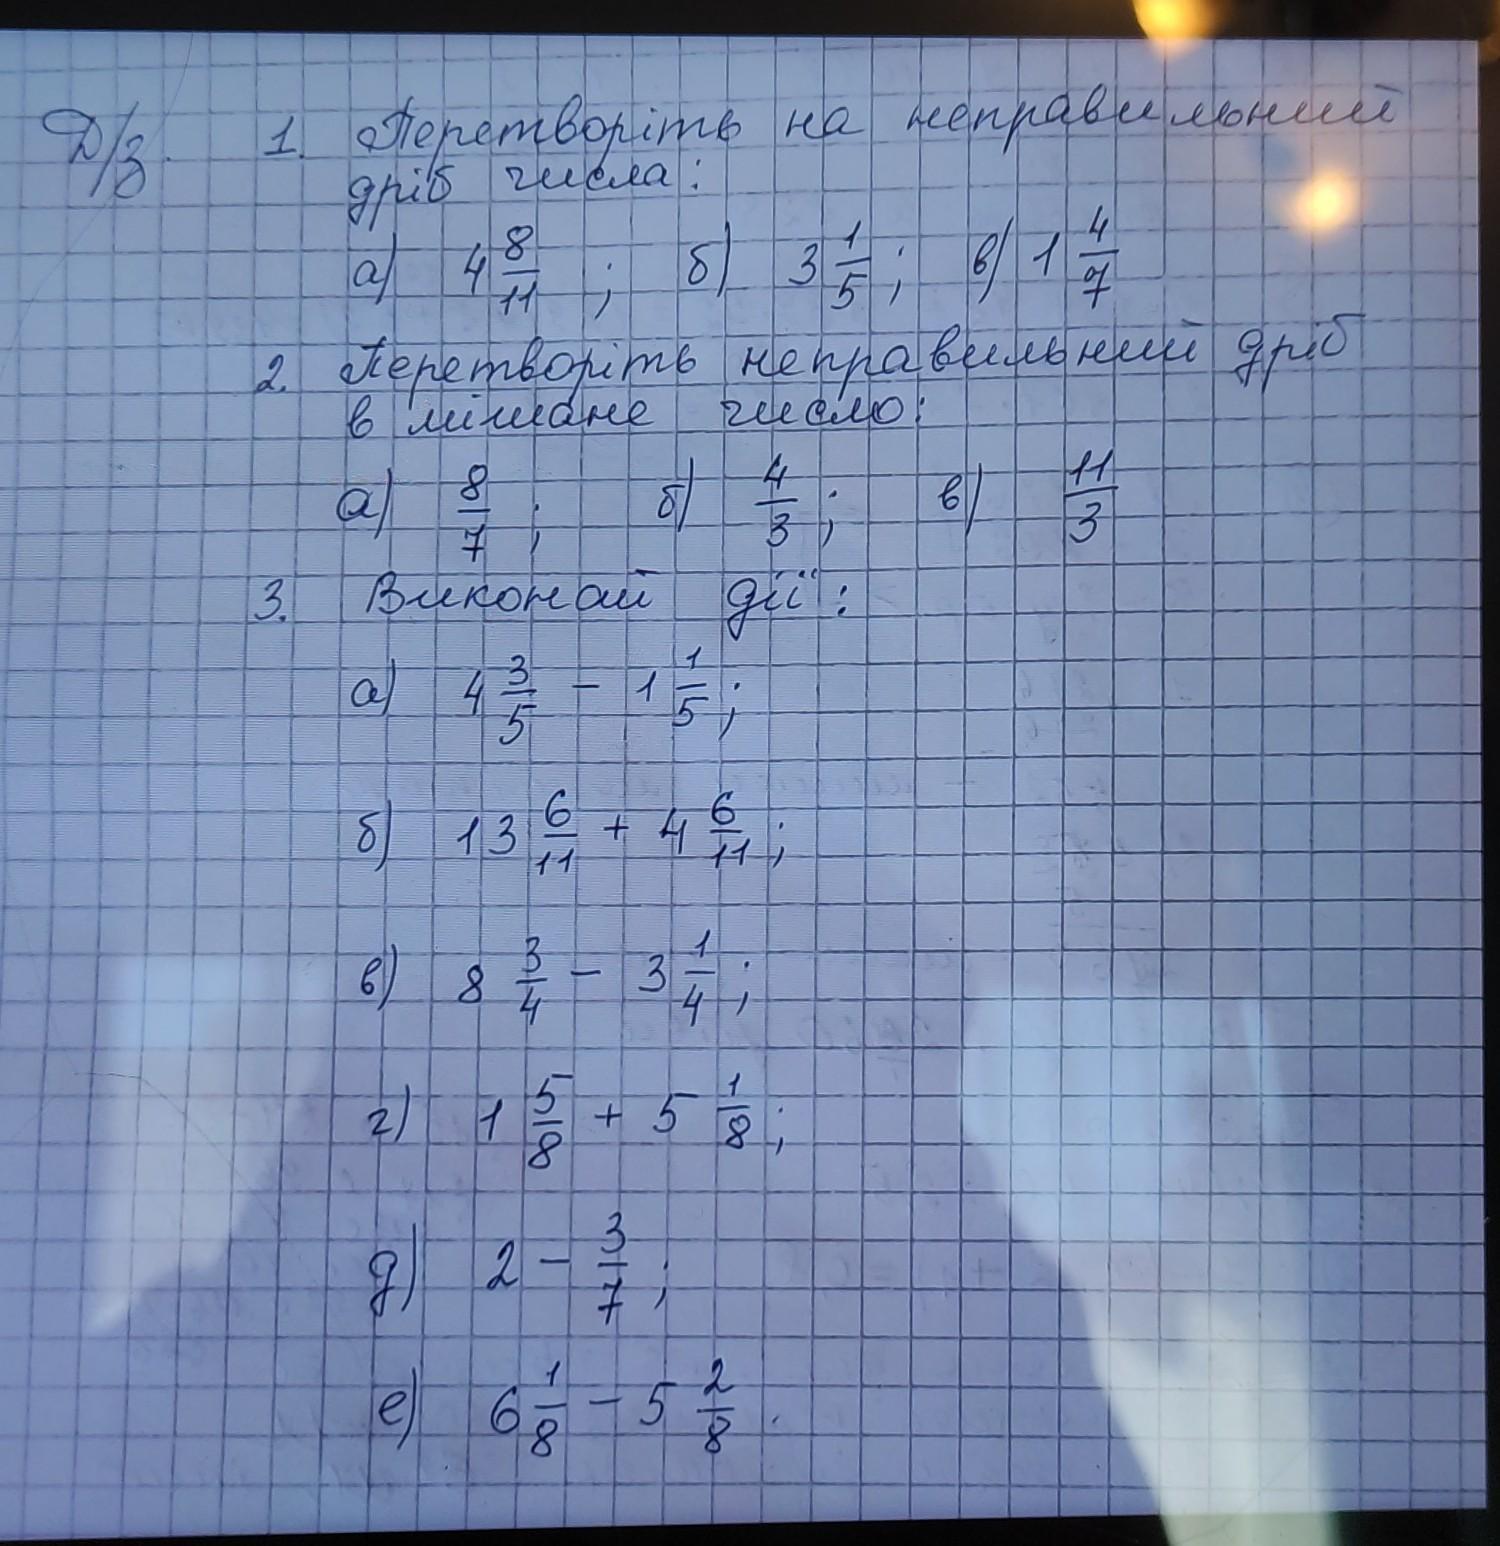 Д/з. 1. Перетворіть на неправильний
дріб числа:
а) 4 8/11 ; б) 3 1/5 ; в) 1 4/7
2. Перетворіть неправильний дріб
в мішане число:
а) 8/7 ; б) 4/3 ; в) 11/3
3. Виконай дії:
а) 4 3/5 - 1 1/5 ;
б) 13 6/11 + 4 6/11 ;
в) 8 3/4 - 3 1/4 ;
г) 1 5/8 + 5 1/8 ;
д) 2 - 3/7 ;
е) 6 1/8 - 5 2/8 .